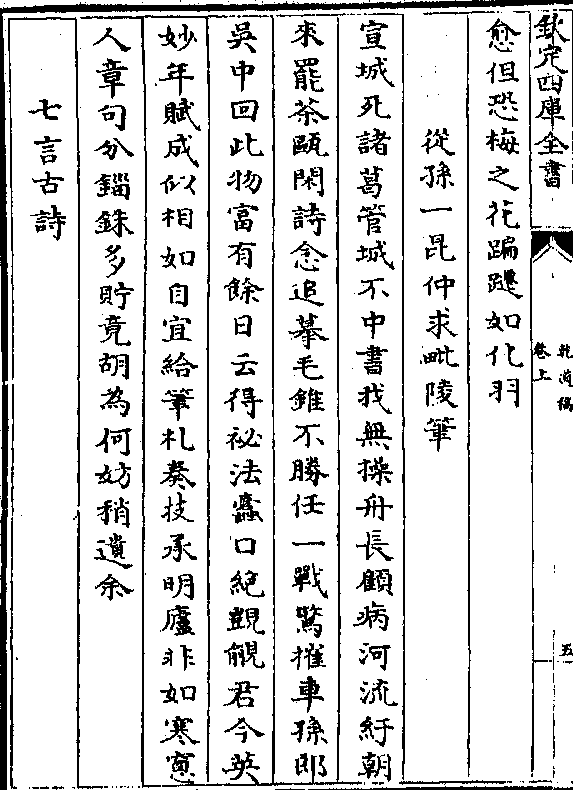 欽定四庫全書
乾道稿
卷上
五
愈但恐梅之花蹁躚如化羽
從孫一昆仲求毗陵筆
宣城死諸葛管城不中書我無操舟長顧病河流紆朝
來罷茶甌閑詩念追摹毛錐不勝任一戰驚摧車孫郎
吳中回此物富有餘日云得祕法蠹口絶覬覦君今英
妙年賦成似相如自宜給筆札奏技承明廬非如寒窻
人章句分錙銖多貯竟胡為何妨稍遺余
七言古詩